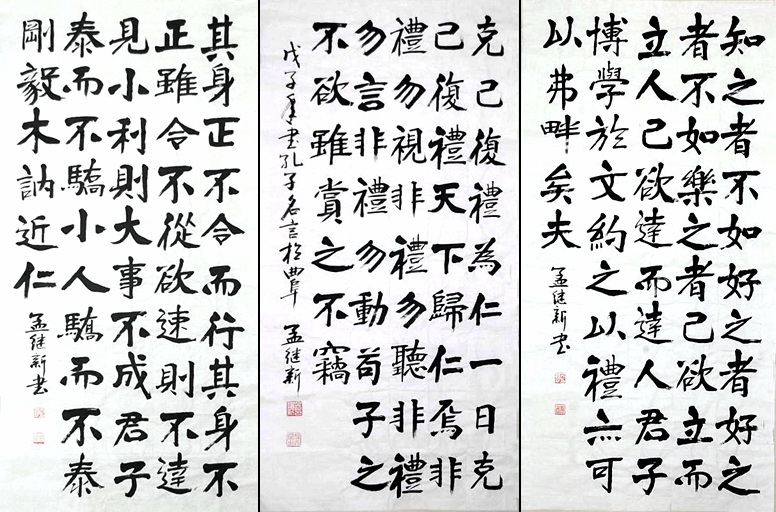 知之者不如好之者好之
者不如樂之者己欲立而
立人己欲達而達人君子
博學於文約之以禮亦可
以弗畔矣夫
孟继新书
克己復禮為仁一日克
己復禮天下歸仁焉非
禮勿視非禮勿聽非禮
勿言非禮勿動苟子之
不欲雖賞之不竊
戊子年书孔子名言於曲阜 孟继新
其身正不令而行其身不
正雖令不從欲速則不達
見小利則大事不成君子
泰而不驕小人驕而不泰
剛毅木訥近仁
孟继新书